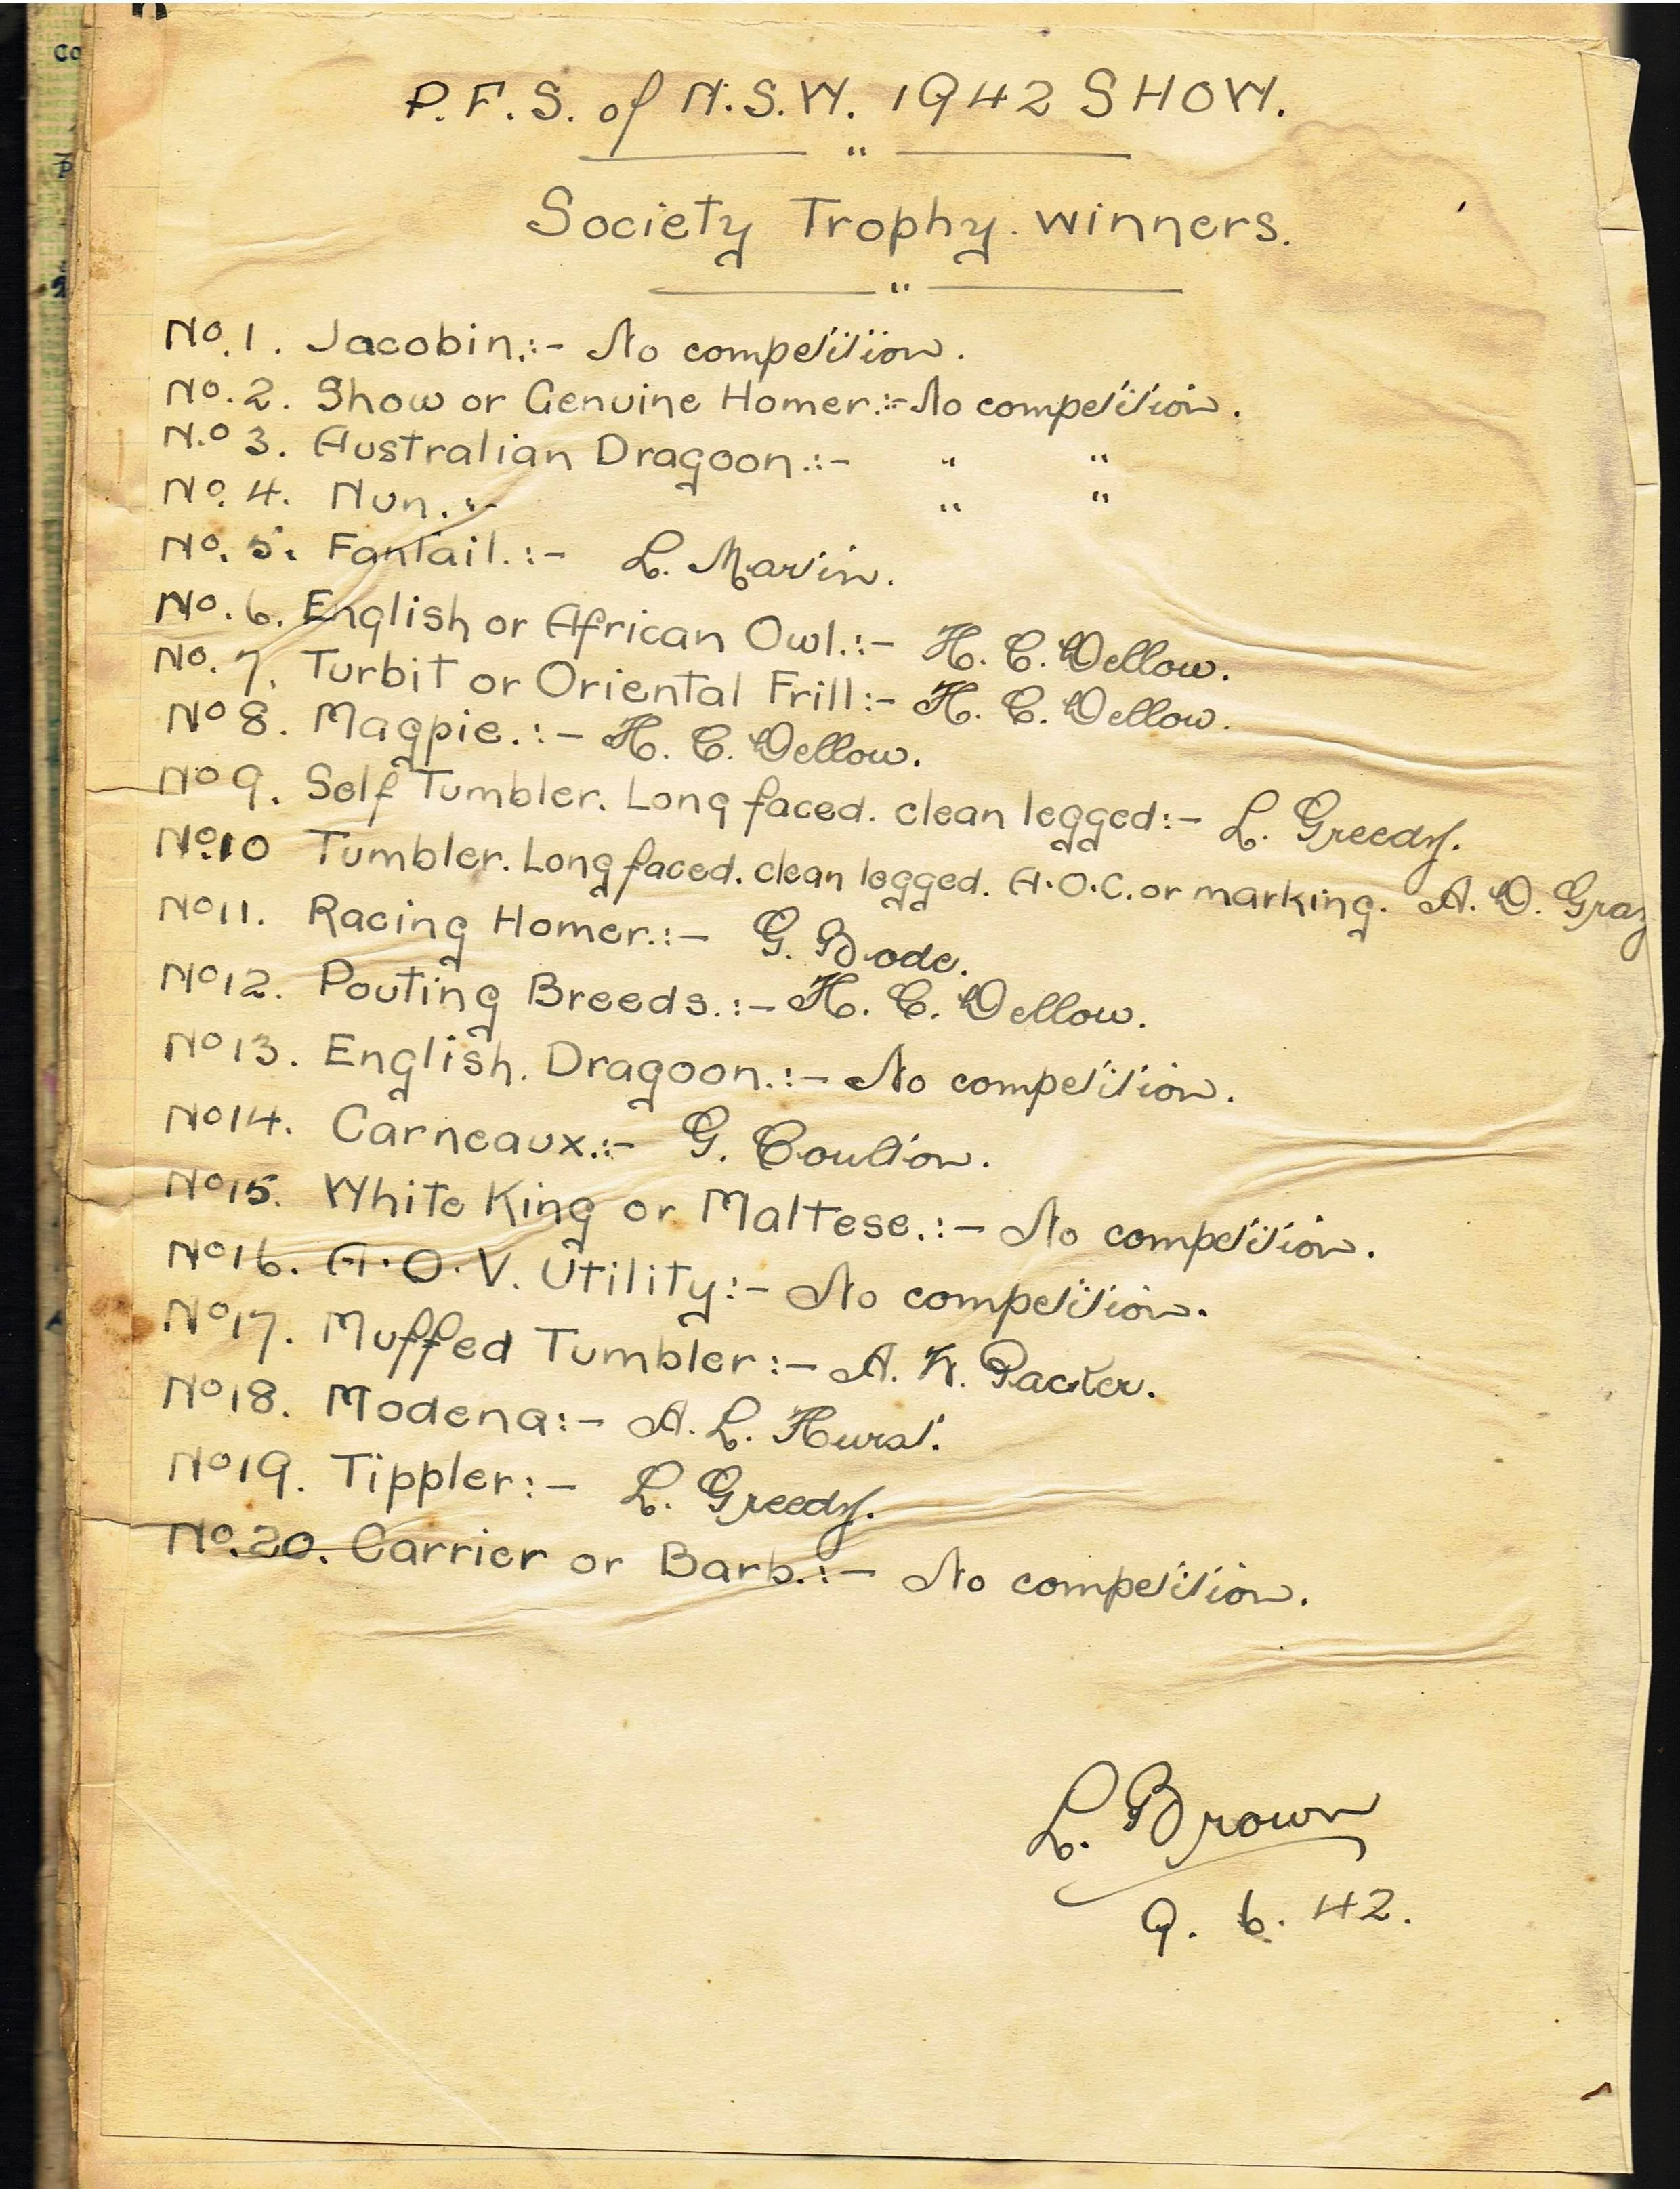 P.F.S. of N.S.W. 1942 SHOW.
"
Society Trophy. winners.
"
No.1. Jacobin.:- No competition.
No.2. Show or Genuine Homer.:- No competition.
N.o 3. Australian Dragoon.:- " "
No.4. Nun.:- " "
No.5. Fantail.:- L. Martin.
No.6. English or African Owl.:- H. C. Dellow.
No.7. Turbit or Oriental Frill:- H. C. Dellow.
No 8. Magpie.:- H. C. Dellow.
No 9. Self Tumbler. Long faced. clean legged:- L. Greedy.
No.10 Tumbler. Long faced. clean legged. A.O.C. or marking. A. D. Gray
No 11. Racing Homer.:- G. Bode.
No 12. Pouting Breeds.:- H. C. Dellow.
No 13. English. Dragoon.:- No competition.
No 14. Carneaux.:- G. Coulton.
No 15. White King or Maltese.:- No competition.
No 16. A.O.V. Utility:- No competition.
No 17. Muffed Tumbler:- A. W. Packer.
No 18. Modena:- A. L. Hurst.
No 19. Tippler:- L. Greedy.
No.20. Carrier or Barb.:- No competition.
L. Brown
9. 6. 42.